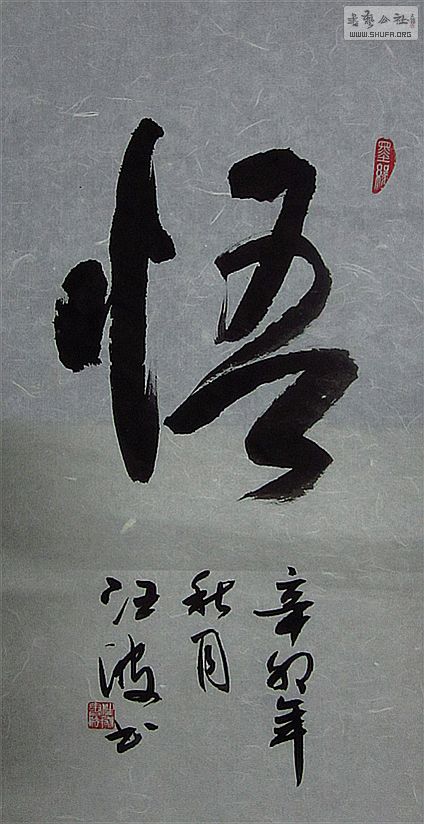 书艺公社
WWW.SHUFA.ORG
悟
墨缘
辛卯年
秋月
汪波书